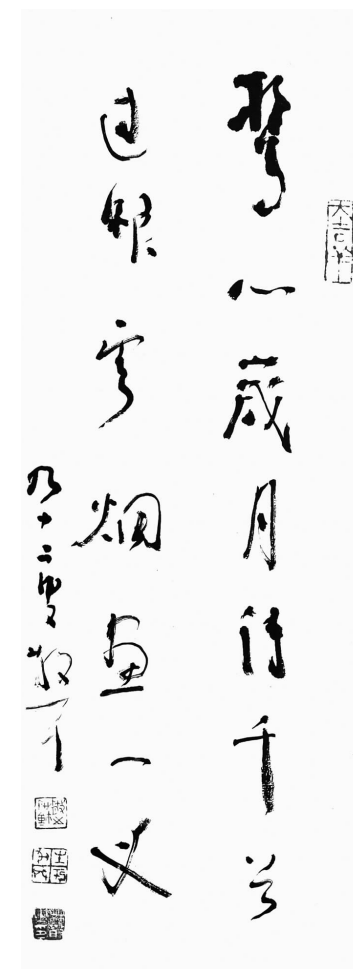 驚心歲月詩千首
過眼雲烟畫一叉
九十二叟散耳